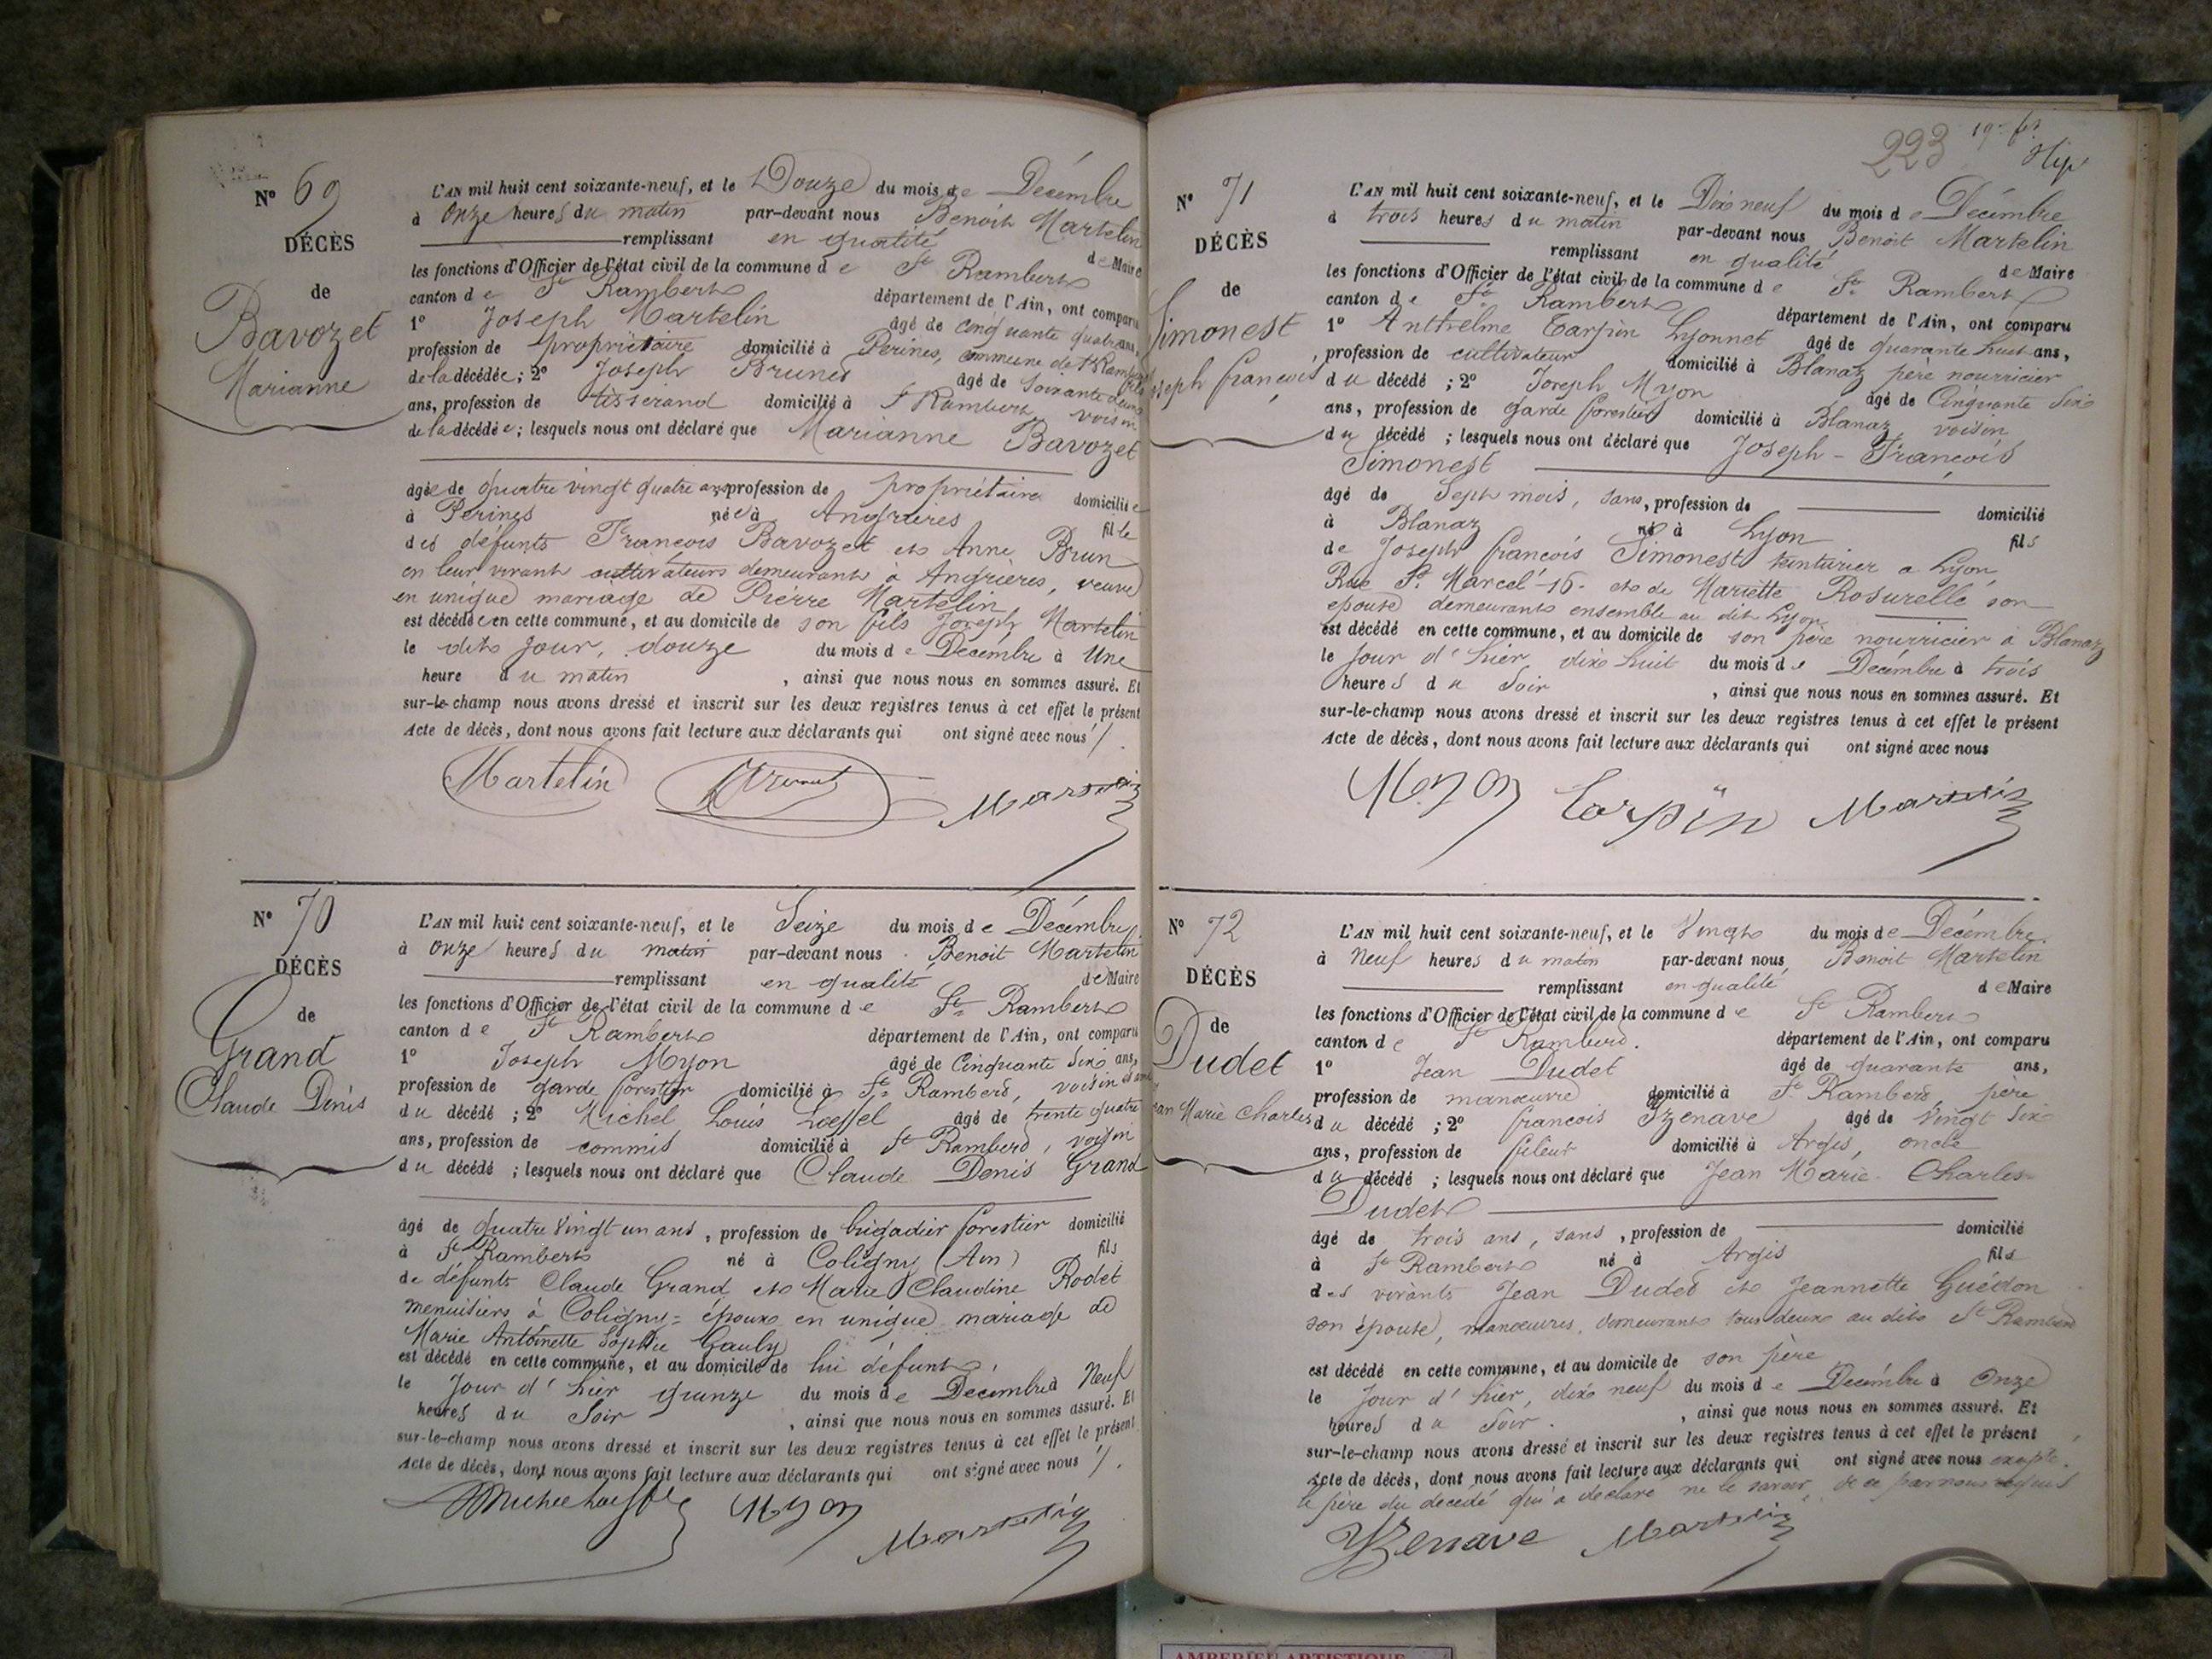 N° 69
DÉCÈS
de
Bavozet
Marianne
L'AN mil huit cent soixante-neuf, et le Douze du mois de Décembre
à onze heures du matin par-devant nous Benoit Martelin
remplissant en qualité de Maire
les fonctions d'Officier de l'état civil de la commune de St Rambert
canton de St Rambert département de l'Ain, ont comparu
1° Joseph Martelin âgé de cinquante quatre ans,
profession de propriétaire domicilié à Perines, commune de St Rambert fils
de la décédée; 2° Joseph Brunet âgé de soixante deux
ans, profession de tisserand domicilié à St Rambert voisin
de la décédée; lesquels nous ont déclaré que Marianne Bavozet
âgée de quatre vingt quatre ans profession de propriétaire domiciliée
à Perines née à Angrières fille
des défunts Francois Bavozet et Anne Brun
en leur vivant cultivateurs demeurant à Angrières, veuve
en unique mariage de Pierre Martelin
est décédée en cette commune, et au domicile de son fils Joseph Martelin
le dit jour, douze du mois de Décembre à Une
heure du matin , ainsi que nous nous en sommes assuré. Et
sur-le-champ nous avons dressé et inscrit sur les deux registres tenus à cet effet le présent
Acte de décès, dont nous avons fait lecture aux déclarants qui ont signé avec nous
Martelin Brunet Martelin
N° 70
DÉCÈS
de
Grand
Claude Denis
L'AN mil huit cent soixante-neuf, et le Seize du mois de Décembre
à onze heures du matin par-devant nous Benoit Martelin
remplissant en qualité de Maire
les fonctions d'Officier de l'état civil de la commune de St Rambert
canton de St Rambert département de l'Ain, ont comparu
1° Joseph Myon âgé de Cinquante six ans,
profession de garde forestier domicilié à St Rambert, voisin
du décédé; 2° Michel Louis Loeffel âgé de trente quatre
ans, profession de commis domicilié à St Rambert, voisin
du décédé; lesquels nous ont déclaré que Claude Denis Grand
âgé de quatre vingt un ans, profession de brigadier forestier domicilié
à St Rambert né à Coligny (Ain) fils
de défunts Claude Grand et Marie Claudine Rodet
menuisiers à Coligny = époux en unique mariage de
Marie Antoinette Sophie Gauly
est décédé en cette commune, et au domicile de lui défunt,
le jour d'hier quinze du mois de Décembre à Neuf
heures du soir , ainsi que nous nous en sommes assuré. Et
sur-le-champ nous avons dressé et inscrit sur les deux registres tenus à cet effet le présent
Acte de décès, dont nous avons fait lecture aux déclarants qui ont signé avec nous
Myon Martelin
223
N° 71
DÉCÈS
de
Simonest
Joseph françois
L'AN mil huit cent soixante-neuf, et le Dix neuf du mois de Décembre
à trois heures du matin par-devant nous Benoit Martelin
remplissant en qualité de Maire
les fonctions d'Officier de l'état civil de la commune de St Rambert
canton de St Rambert département de l'Ain, ont comparu
1° Anthelme Tarpin Lyonnet âgé de quarante huit ans,
profession de cultivateur domicilié à Blanaz père nourricier
du décédé; 2° Joseph Myon âgé de Cinquante six
ans, profession de garde forestier domicilié à Blanaz voisin
du décédé; lesquels nous ont déclaré que Joseph - François
Simonest
âgé de Sept mois, sans, profession de domicilié
à Blanaz né à Lyon fils
de Joseph françois Simonest teinturier a Lyon
Rue St Marcel 16. et de Mariette Rosurelle son
epouse demeurant ensemble au dit Lyon
est décédé en cette commune, et au domicile de son père nourricier à Blanaz
le jour d'hier dix huit du mois de Décembre à trois
heures du soir , ainsi que nous nous en sommes assuré. Et
sur-le-champ nous avons dressé et inscrit sur les deux registres tenus à cet effet le présent
Acte de décès, dont nous avons fait lecture aux déclarants qui ont signé avec nous
Myon Tarpin Martelin
N° 72
DÉCÈS
de
Dudet
Jean Marie Charles
L'AN mil huit cent soixante-neuf, et le Vingt du mois de Décembre
à Neuf heures du matin par-devant nous Benoit Martelin
remplissant en qualité de Maire
les fonctions d'Officier de l'état civil de la commune de St Rambert
canton de St Rambert. département de l'Ain, ont comparu
1° Jean Dudet âgé de quarante ans,
profession de manœuvre domicilié à St Rambert, père
du décédé; 2° françois Yzenave âgé de vingt six
ans, profession de fileur domicilié à Argis, oncle
du décédé; lesquels nous ont déclaré que Jean Marie Charles
Dudet
âgé de trois ans, sans, profession de domicilié
à St Rambert né à Argis fils
des vivants Jean Dudet et Jeannette Guédon
son épouse, manœuvres, demeurant tous deux au dit St Rambert
est décédé en cette commune, et au domicile de son père
le jour d'hier, dix neuf du mois de Décembre à Onze
heures du soir. , ainsi que nous nous en sommes assuré. Et
sur-le-champ nous avons dressé et inscrit sur les deux registres tenus à cet effet le présent
Acte de décès, dont nous avons fait lecture aux déclarants qui ont signé avec nous excepté
le père du décédé qui a déclaré ne le savoir, de ce par nous requis
Yzenave Martelin
AMBERIEU ARTISTIQUE